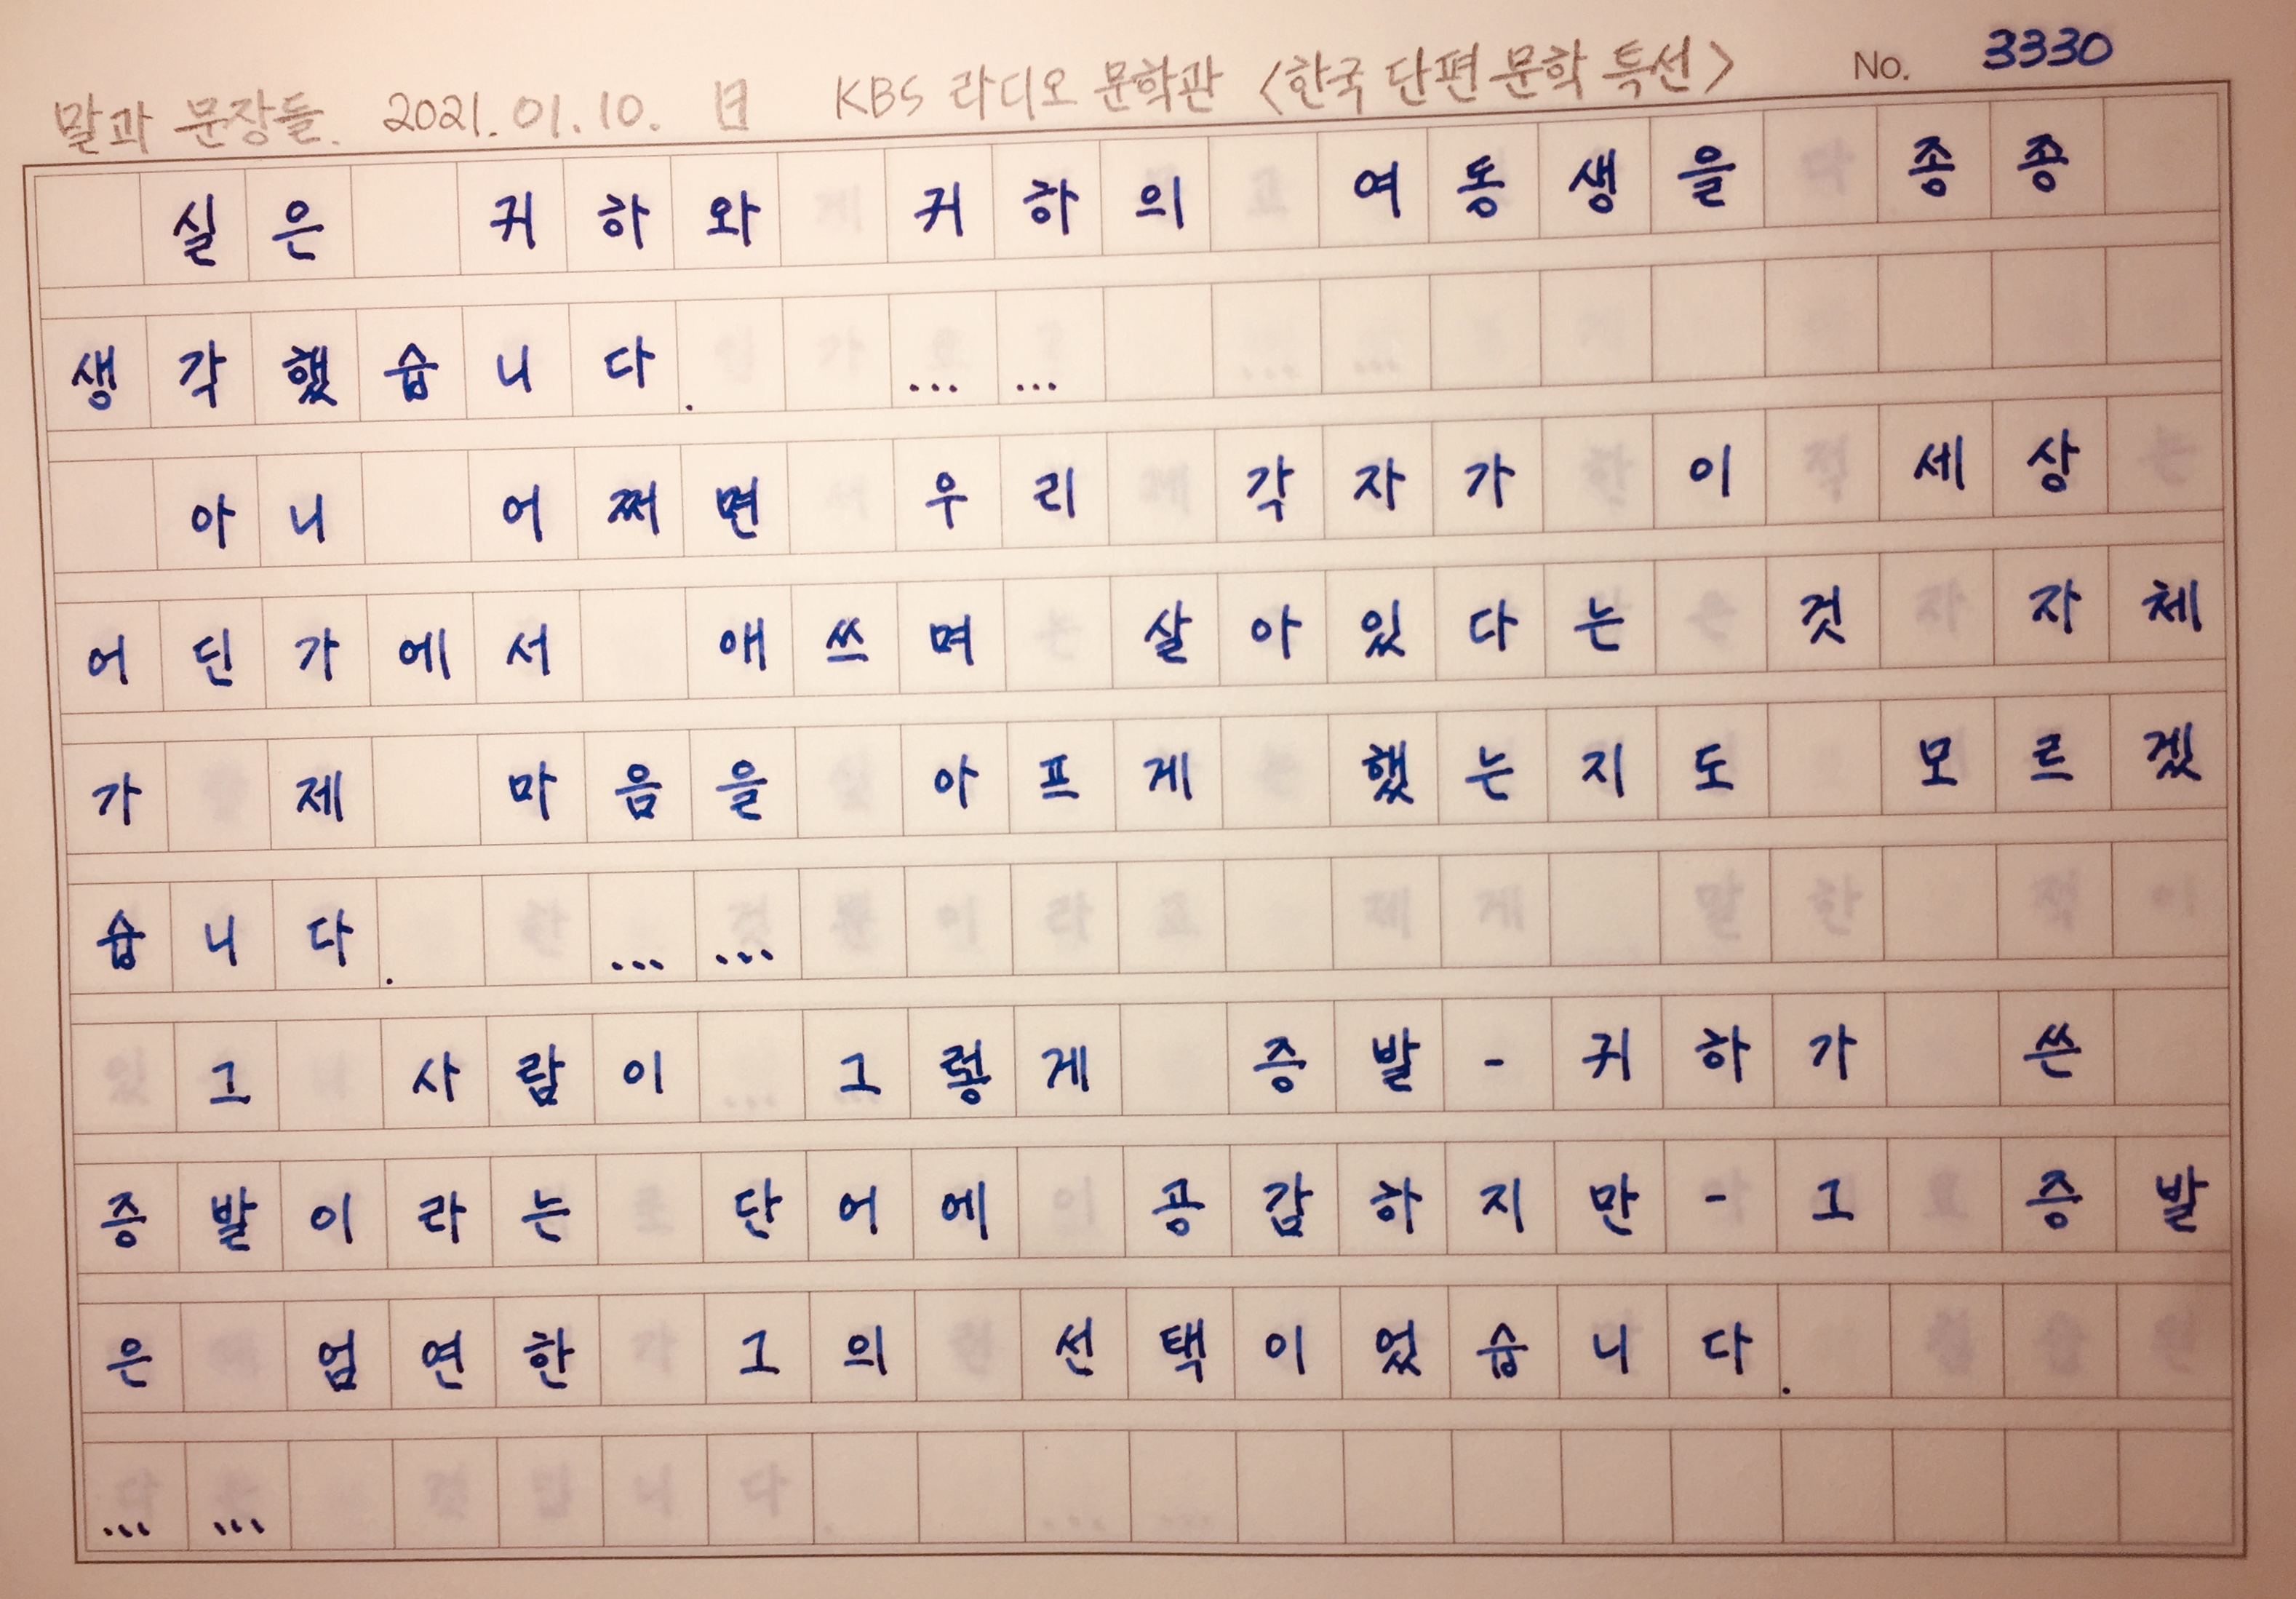 말과 문장들. 2021.01.10. 日 KBS 라디오 문학관 <한국 단편 문학 특선> No. 3330
실은 귀하와 귀하의 여동생을 종종
생각했습니다. ……
아니 어쩌면 우리 각자가 이 세상
어딘가에서 애쓰며 살아있다는 것 자체
가 제 마음을 아프게 했는지도 모르겠
습니다. ……
그 사람이 그렇게 증발-귀하가 쓴
증발이라는 단어에 공감하지만-그 증발
은 엄연한 그의 선택이었습니다.
……